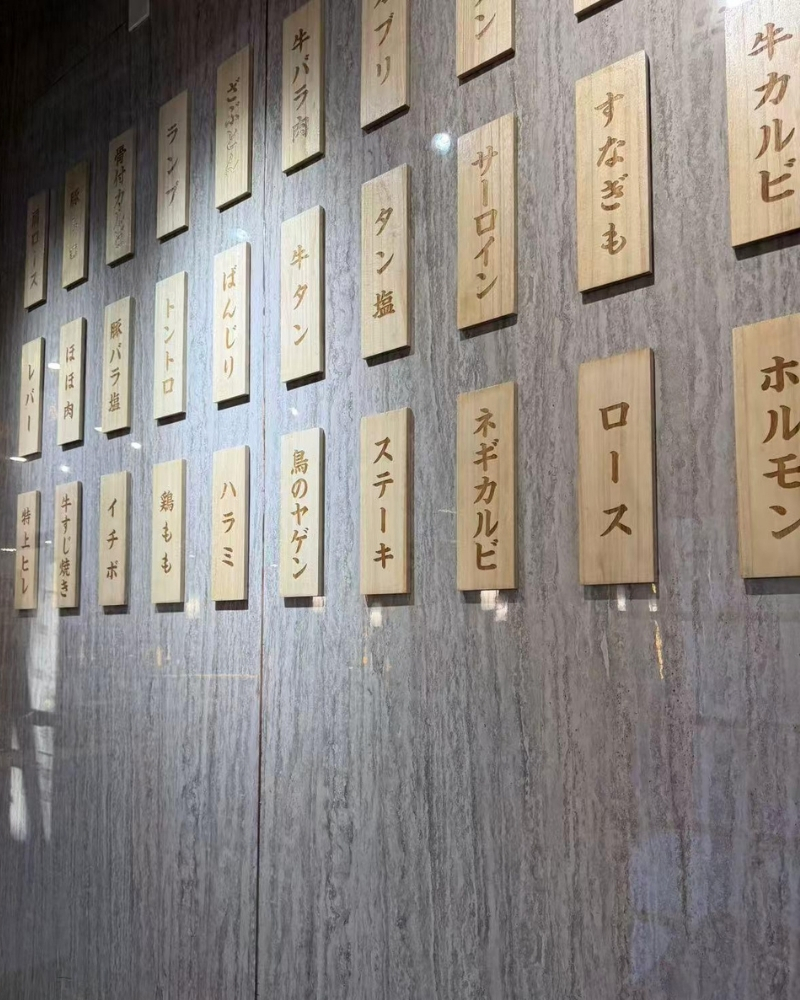 ン
ブリ
牛バラ肉
ざぶとん
ランプ
骨付カルビ
豚
肩ロース
牛カルビ
すなぎも
サーロイン
タン塩
牛タン
ばんじり
トントロ
豚バラ塩
ほほ肉
レバー
ホルモン
ロース
ネギカルビ
ステーキ
鳥のヤゲン
ハラミ
鶏もも
イチボ
牛すじ焼き
特上ヒレ